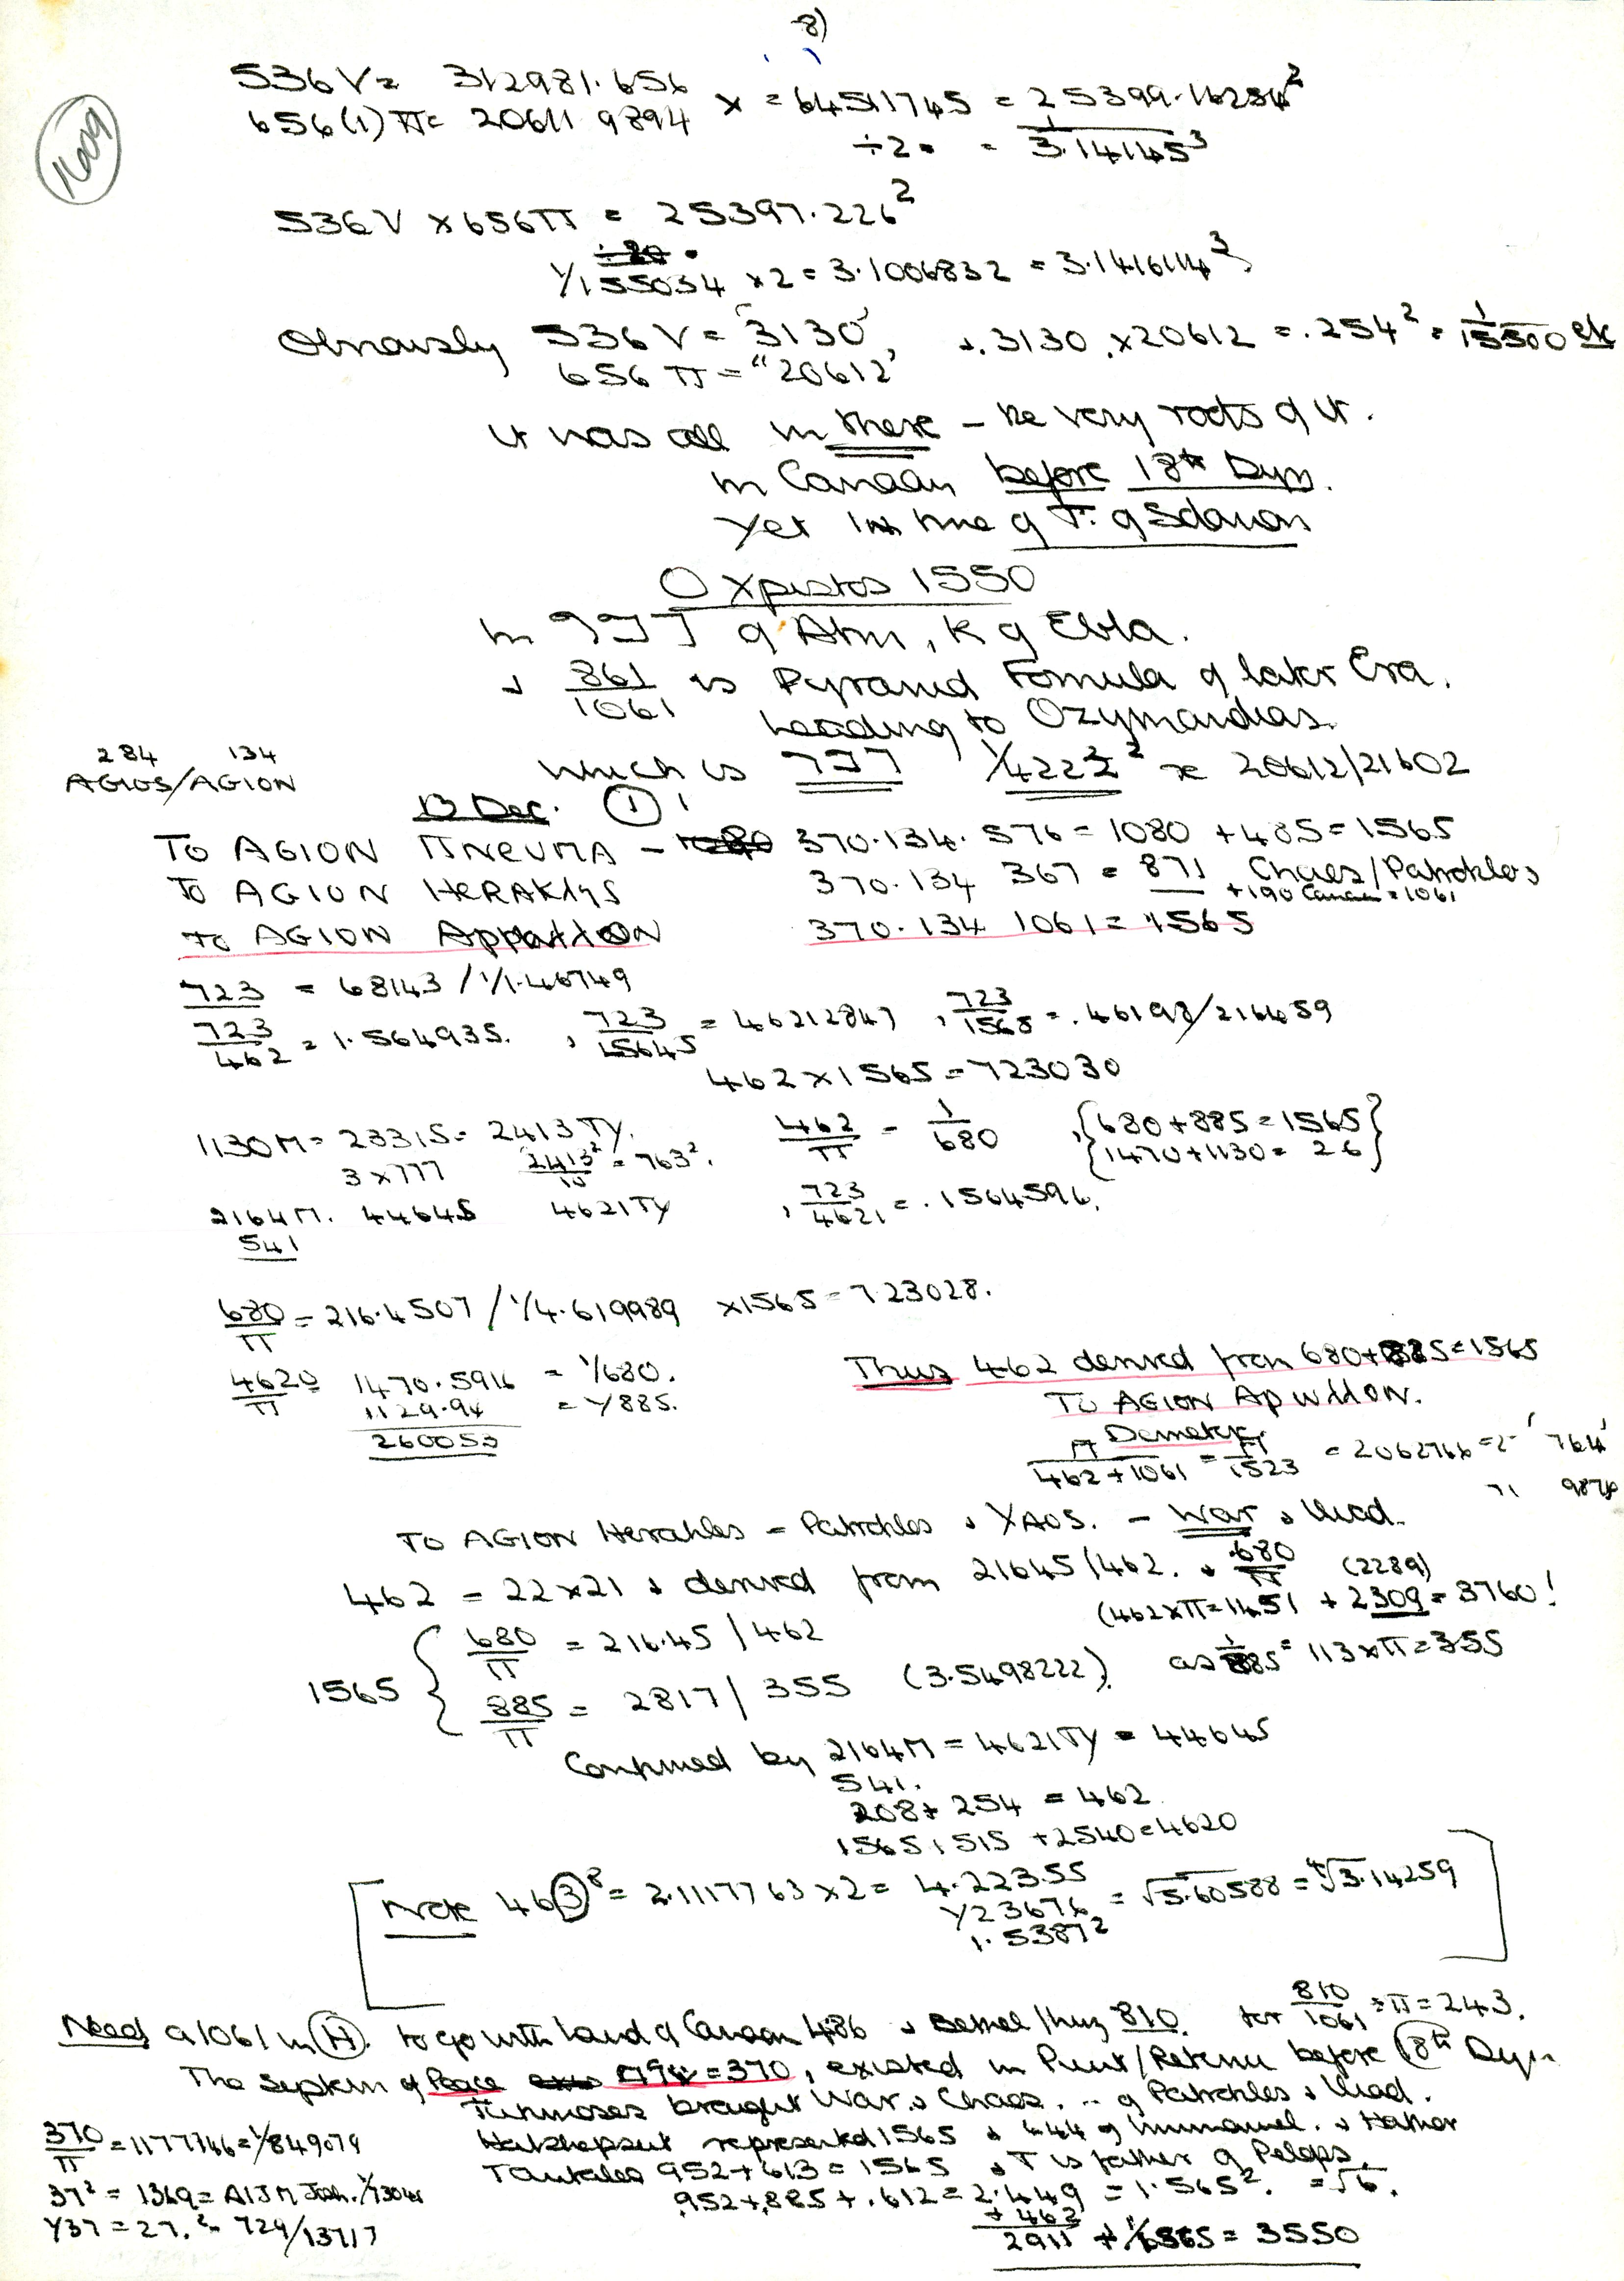 8)
1609
536 V = 312981.656
656(1) π = 20611 9894
x = 64511745 = 25399.16284²
÷2 = 1/3.14145³
536 V x 656π = 25397.226²
1/155034 x 2 = 3.1006832 = 3.1416114³
Obviously 536 V = '3130'
656 π = "20612'
.3130 x 20612 = .254² = 1/15500 etc
It was all in there – the very roots of it.
in Canaan before 18th Dyn.
Yet in time of T. of Solomon
O Xpistos 1550
of Atm, K of Ebla.
861/1061 is Pyramid Formula of later Era.
Leading to Ozymandias.
which is 1/4222² 20612/21602
284 134
AGIOS/AGION
13 Dec. ①
TO AGION ΠNEUMA – 370.134.576 = 1080 + 485 = 1565
TO AGION HERAKLYS 370.134 367 = 871 Chaos/Patrokles
+190 Canaan = 1061
TO AGION 370.134 1061 = 1565
723 = 68143 / 1/1.46749
723/462 = 1.564935. , 723/15645 = 46212847 , 723/1565 = .46198/216459
462 x 1565 = 723030
1130M = 2331S = 2413TY. 462/π = 1/680 , {680 + 885 = 1565
3 x 777 2413²/10 = 763². 1470 + 1130 = 26}
2164M. 4464S 4621TY , 723/4621 = .1564596.
541
680/π = 216.4507 / 1/4.619989 x 1565 = 723028.
4620/π 1470.5916 = 1/680.
1129.94 = 1/885.
260053
Thus 462 derived from 680 + 885 = 1565
TO AGION Apwllon.
Demeter
π/462+1061 = π/1523 = 2062766 = 2 '764'
TO AGION Herakles = Patrokles & XAOS. – War & Iliad.
462 = 22 x 21 & derived from 21645/462. & 680/π (2289)
(462 x π = 1451 + 2309 = 3760!
1565 { 680/π = 216.45 / 462
885/π = 2817 / 355 (3.5498222) as 1/885 = 113 x π = 355
Confirmed by 2164M = 4621TY = 4464S
541.
208 + 254 = 462
1565 1515 + 2540 = 4620
[Note 46③⁸ = 2.1117763 x 2 = 4.22355
1/23676 = √5.60588 = ⁴√3.14259
1.5387²]
Need a 1061 in (H) to go with Land of Canaan 486 & 810. for 810/1061 ÷ π = 243.
The system of Peace = 370, existed in Punt/Retenu before 18th Dyn
Tuthmoses brought War & Chaos. .. of Patrokles & Iliad.
370/π = 1177746 = 1/849079 Hatshepsut represented 1565 & 444 of Immanuel. & Hathor
Tantalos 952 + 613 = 1565 & T is father of Pelops.
37² = 1369 = .952 + .885 + .612 = 2.449 = 1.565². = √6.
1/37 = 27. 729/13717 + 462
2911 + 1/1565 = 3550